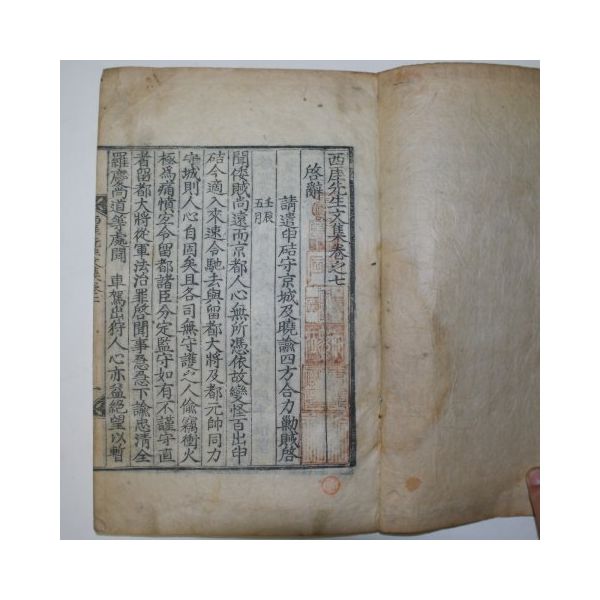 西厓先生文集卷之七
啓辭
請遣申硈守京城及曉諭四方合力勦賊啓
壬辰
五月
聞倭賊尙遠而京都人心無所憑依故變怪百出申
硈今適入來速令馳去與留都大將及都元帥同力
守城則人心自固矣且各司無守護之人偸竊衝火
極爲痛憤宏令留都諸臣分定監守如有不謹守直
者留都大將從軍法治罪啓聞事急急下諭忠淸全
羅慶尙道等處聞 車駕出狩人心亦益絶望以暫